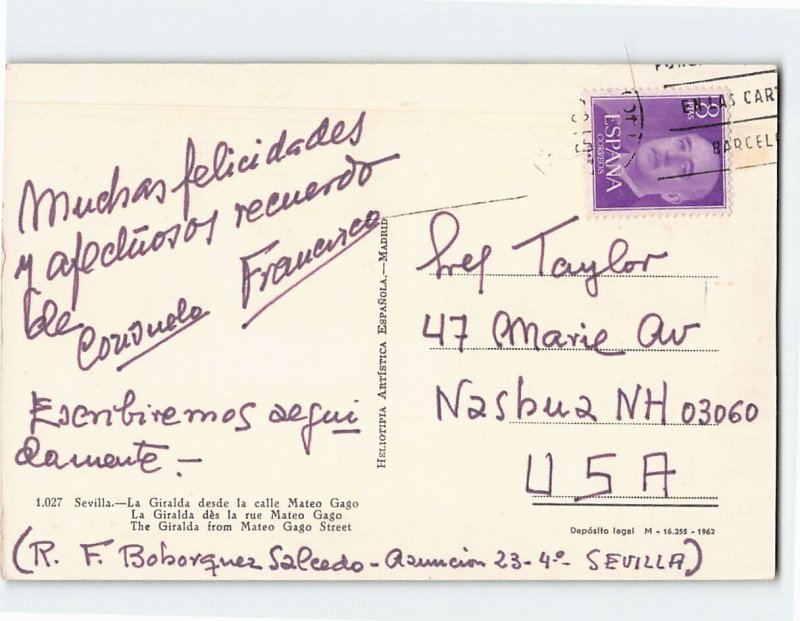 Muchas felicidades
y afectuosos recuerdo
de
Consuelo Francisco
Escribiremos segui
damente.-
1.027 Sevilla.—La Giralda desde la calle Mateo Gago
La Giralda dès la rue Mateo Gago
The Giralda from Mateo Gago Street
HELIOTIPIA ARTÍSTICA ESPAÑOLA.—MADRID
EN LAS CART
BARCEL
8 PTAS
ESPAÑA
CORREOS
Taylor
47 Marie Av
Nashua NH 03060
USA
Depósito legal M - 16.255 - 1962
(R. F. Bohorquez Salcedo - Asuncion 23-4º- SEVILLA)